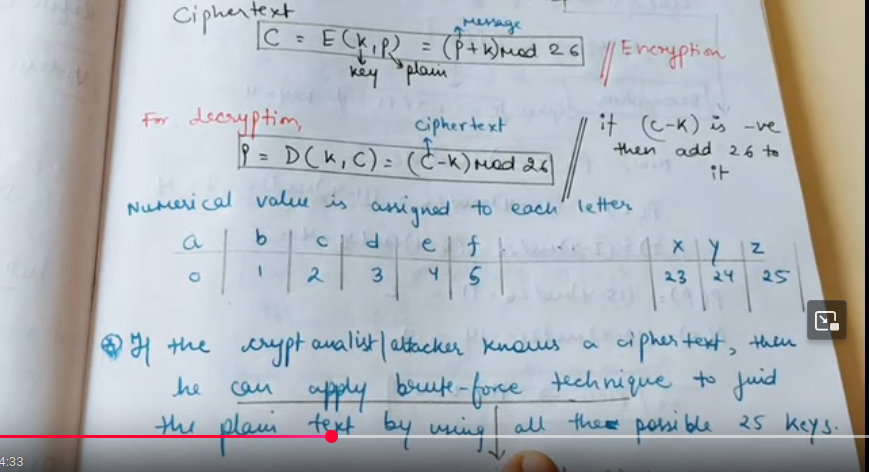 Ciphertext
message
C = E(k,p) = (p+k)mod 26 // Encryption
key plain
For decryption,
ciphertext
P = D(K, C) = (C-K)mod 26
// if (C-K) is -ve
then add 26 to
it
Numerical value is assigned to each letter
a b c d e f . . x y z
0 1 2 3 4 5 23 24 25
If the cryptanalist/attacker knows a ciphertext, then
he can apply brute-force technique to find
the plain text by using all the possible 25 keys.
4:33